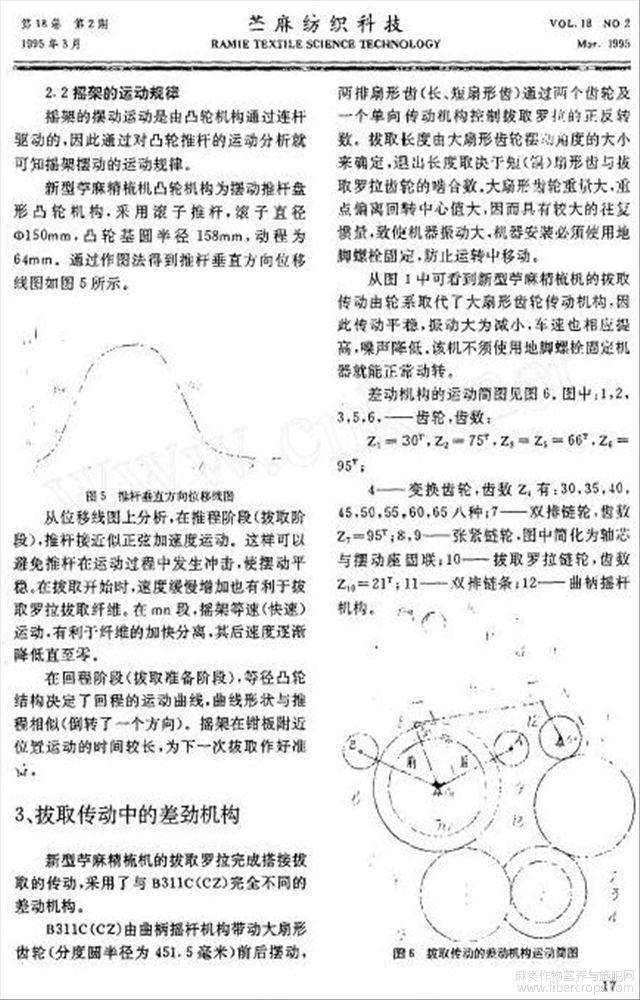 第18卷 第2期
1995年3月
苎麻纺织科技
RAMIE TEXTILE SCIENCE TECHNOLOGY
VOL.18 NO 2
Mar. 1995
2.2摇架的运动规律
摇架的摆动运动是由凸轮机构通过连杆
驱动的,因此通过对凸轮推杆的运动分析就
可知摇架摆动的运动规律。
新型苧麻精梳机凸轮机构为摆动推杆盘
形凸轮机构,采用滚子推杆,滚子直径
Φ150mm,凸轮基圆半径158mm,动程为
64mm。通过作图法得到推杆垂直方向位移
线图如图5所示。
图5 推杆垂直方向位移线图
从位移线图上分析,在推程阶段(拔取阶
段),推杆接近似正弦加速度运动。这样可以
避免推杆在运动过程中发生冲击,使摆动平
稳。在拔取开始时,速度缓慢增加也有利于拔
取罗拉拔取纤维。在mn段,摇架等速(快速)
运动,有利于纤维的加快分离,其后速度逐渐
降低直至零。
在回程阶段(拔取准备阶段),等径凸轮
结构决定了回程的运动曲线,曲线形状与推
程相似(倒转了一个方向)。摇架在钳板附近
位置运动的时间较长,为下一次拔取作好准
备。
3、拔取传动中的差劲机构
新型苧麻精梳机的拔取罗拉完成搭接拔
取的传动,采用了与B311C(CZ)完全不同的
差动机构。
B311C(CZ)由曲柄摇杆机构带动大扇形
齿轮(分度圆半径为451.5毫米)前后摆动,
两排扇形齿(长、短扇形齿)通过两个齿轮及
一个单向传动机构控制拔取罗拉的正反转
数。拔取长度由大扇形齿轮摆动角度的大小
来确定,退出长度取决于短(铜)扇形齿与拔
取罗拉齿轮的啮合数。大扇形齿轮重量大,重
点偏离回转中心值大,因而具有较大的往复
惯量,致使机器振动大,机器安装必须使用地
脚螺栓固定,防止运转中移动。
从图1中可看到新型苧麻精梳机的拔取
传动由轮系取代了大扇形齿轮传动机构,因
此传动平稳,振动大为减小,车速也相应提
高,噪声降低。该机不须使用地脚螺栓固定机
器就能正常动转。
差动机构的运动简图见图6。图中:1,2、
3,5,6,——齿轮,齿数:
Z₁=30ᵀ,Z₂=75ᵀ,Z₃=Z₅=66ᵀ,Z₆=
95ᵀ;
4——变换齿轮,齿数Z₄有:30,35,40,
45,50,55,60,65八种;7——双排链轮,齿数
Z₇=95ᵀ;8,9——张紧链轮,图中简化为轴芯
与摆动座固联;10——拔取罗拉链轮,齿数
Z₁₀=21ᵀ;11——双排链条;12——曲柄摇杆
机构。
图6 拔取传动的差动机构运动简图
17
麻类作物营养与施肥网
www.fibercrops.com